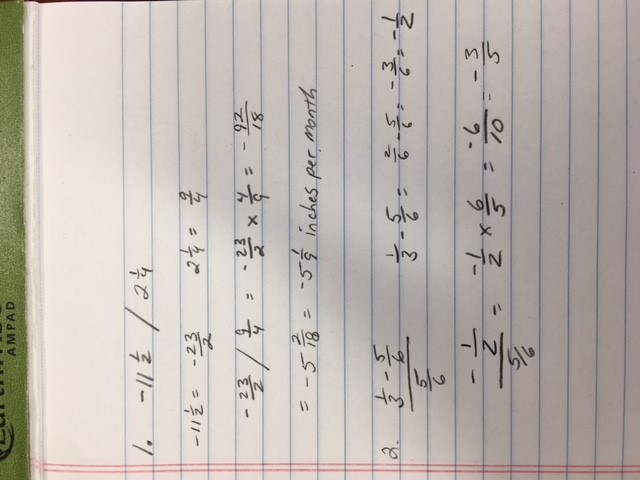 Earthwise
AMPAD
1. -11 1/2 / 2 1/4
-11 1/2 = -23/2   2 1/4 = 9/4
-23/2 / 9/4 = -23/2 x 4/9 = -92/18
= -5 2/18 = -5 1/9 inches per month
2. (1/3 - 5/6)/(5/6)   1/3 - 5/6 = 2/6 - 5/6 = -3/6 = -1/2
(-1/2)/(5/6) = -1/2 x 6/5 = -6/10 = -3/5